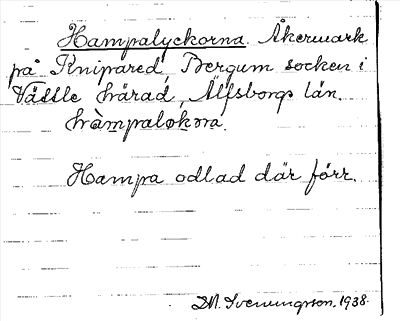 Hampalyckorna. Åkermark
på Knipared, Bergum socken i
Vättle härad, Älfsborgs län.
hàmpalokora.
Hampa odlad där förr.
D.N. Svenungsson. 1938.